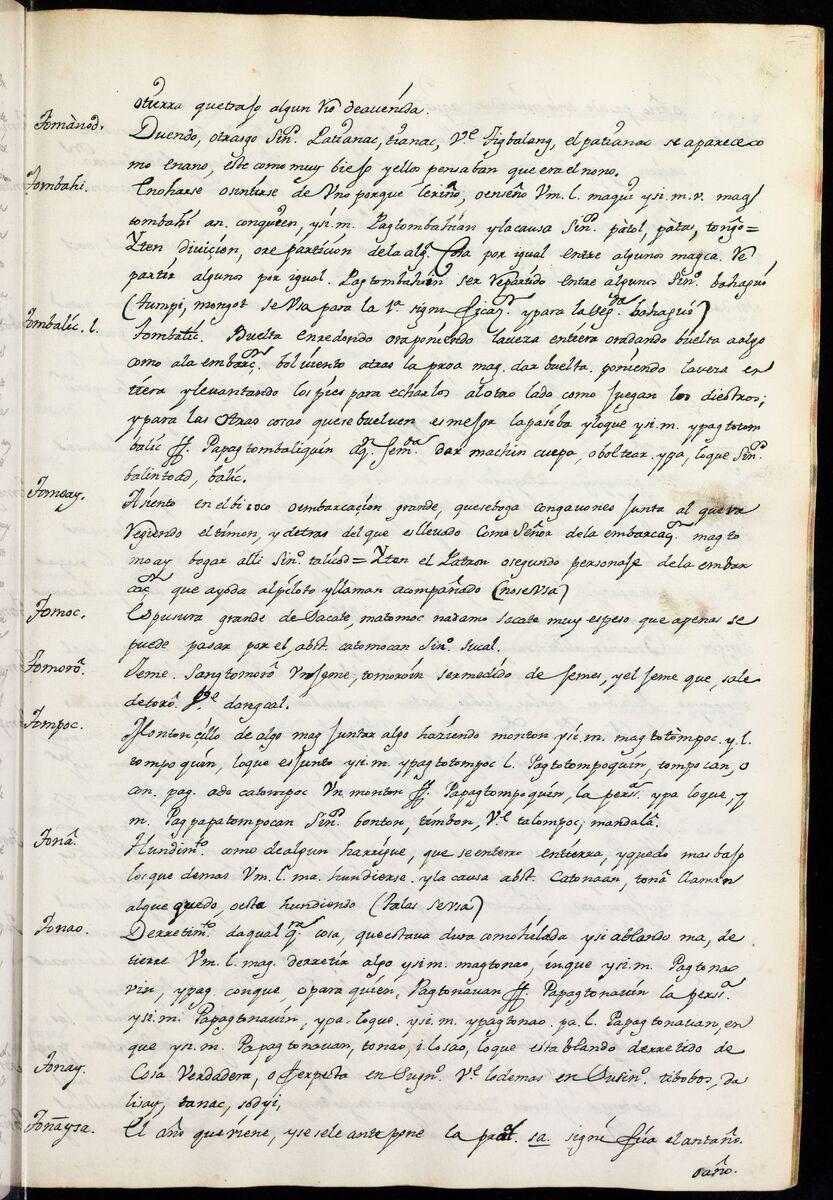 o tierra que trajo algun Rio de avenida.
Tomànod. Duendo, otrasgo Sin.º Patianac, tianac, V.e Tigbalang, el patianac se aparece co
mo enano, este como muy biejo y ellos pensaban que era el nono.
Tombahi. Enoharse o sintirse de Vno porque le riño, o enseño Vm. l. maqui y si. m. v. mag
tombahi an. conq̃.en, y si. m. Pagtombahian y la causa Sin.º pàtol, pàta, tongo=
Yten divicion, o repartición de la alg.ª Cosa por igual entre algunos magca. Re
partir algunos por igual. Pagtombahin ser Repartido entre algunos Sin.º bahagui
(Tumpi, mongot se Vsa para la 1.ª signi ficaz.n y para la seg.da bahagui)
Tombalic. l. Tombatic. Buelta en redondo ora poniendo la veza entiera ora dando buelta a algo
como a la embarc.n bolviento atras la proa mag. dar buelta. poniendo la veza en
tierra y levantando los pies para echarlos al otro lado como juegan los diestros;
y para las otras cosas que se buelven es mejor la pasiba y lo que y si. m. ypagtotom
balic ff. Papagtombaliquin aq.l sem.bra dar machin cuepa, o boltear. ypa, lo que Sin.º
balintoad, balic.
Tomoay. Asiento en el biroco o embarcaçion grande, que se boga con gaviones junta al que va
Regiendo el timon, y detras del que es llevado Como Señor de la embarcaç.n magto
moay bogar alli Sin.º talicod= Yten el Patron o segundo personaje de la embar
caç.n que ayuda al piloto y llaman acompañado (no se Vsa)
Tomoc. Espusura grande de Sacate, matomoc na damo sacate muy espeso que apenas se
puede pasar por el, abst. catomocan Sin.º sucal.
Tomorõ. Jeme. Sangtomorõ Vn jeme, tomoróin ser medido de jemes, y el jeme que, sale
de torõ. V.e dangcal.
Tompoc. Monton çillo de algo mag juntar algo haziendo monton y si. m. magtotompoc y. l.
tompoquin, lo que es junto y si. m. ypagtotompoc l. Pagtotompoquin, tompocan, o
an. pag. ado catompoc Vn monton ff. Papagtompoquin, la pers.ª ypa loque, y
m. Pagpapatompocan Sin.º bonton, timbon, V.e talompoc; mandalã.
Tonã. Hundim.to como de algun harrigue, que se enterro en tierra, y quedo mas bajo
los que demas Vm. l. ma. hundierse. y la causa abst. Catonaán, tonã llaman
al que quedo, o esta hundiendo (Palas se Vsa)
Tonao. Derretim.to da qual q.ra cosa, que estava dura como helada y si ablando ma, de
tierre Vm. l. mag. derretir algo y si m. magtonao, in que y si. m. Pagtonao
vin, ypag. conque, o para quien, Pagtonauan ff. Papagtonauin la pers.ª
y si. m. Papagtonavin, ypa. loque. y si. m. ypagtonao. pa. l. Papagtonauan, en
que y si. m. Papagtonauan, tonao, ilosao, loque esta blando derretido de
Tonay. Cosa Verdadera, o ferpecta en Su gn.º V.e lo demas en Su sin.º tibobos, da
lisay, tanac, sodyi,
Toñaysa. El año que viene, y se se le ante pone la prãl. sa. signi fica el antaño.
oaño.